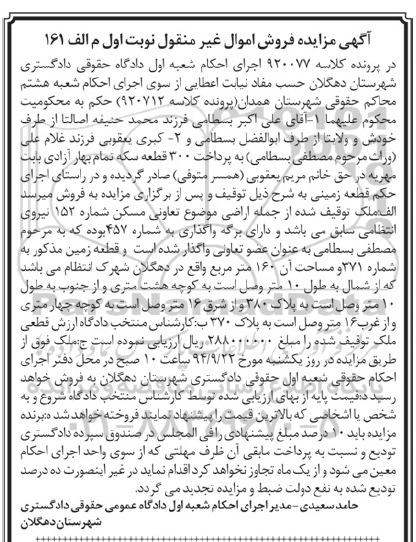 آگهی مزایده فروش اموال غیر منقول نوبت اول م الف ۱۶۱
در پرونده کلاسه ۹۲۰۰۷۷ اجرای احکام شعبه اول دادگاه حقوقی دادگستری
شهرستان دهگلان حسب مفاد نیابت اعطایی از سوی اجرای احکام شعبه هشتم
محاکم حقوقی شهرستان همدان(پرونده کلاسه ۹۲۰۷۱۲) حکم به محکومیت
محکوم علیهما ۱-آقای علی اکبر بسطامی فرزند محمد حنیفه اصالتا از طرف
خودش و ولایتا از طرف ابوالفضل بسطامی و ۲- کبری یعقوبی فرزند غلام علی
(وراث مرحوم مصطفی بسطامی) به پرداخت ۳۰۰ قطعه سکه تمام بهار آزادی بابت
مهریه در حق خانم مریم یعقوبی (همسر متوفی) صادر گردیده و در راستای اجرای
حکم قطعه زمینی به شرح ذیل توقیف و پس از برگزاری مزایده به فروش میرسد
الف:ملک توقیف شده از جمله اراضی موضوع تعاونی مسکن شماره ۱۵۲ نیروی
انتظامی سابق می باشد و دارای برگه واگذاری به شماره ۴۵۷بوده که به مرحوم
مصطفی بسطامی به عنوان عضو تعاونی واگذار شده است و قطعه زمین مذکور به
شماره ۳۷۱و مساحت آن ۱۶۰ متر مربع واقع در دهگلان شهرک انتظام می باشد
که از شمال به طول ۱۰ متر وصل است به کوچه هشت متری و از جنوب به طول
۱۰ متر وصل است به پلاک ۳۸۰ و از شرق ۱۶ متر وصل است به کوچه چهار متری
و از غرب ۱۶ متر وصل است به پلاک ۳۷۰ ب:کارشناس منتخب دادگاه ارزش قطعی
ملک توقیف شده را مبلغ ۲۸۸/۰۰۰/۰۰۰ ریال ارزیابی نموده است ج:ملک فوق از
طریق مزایده در روز یکشنبه مورخ ۹۴/۹/۲۲ ساعت ۱۰ صبح در محل دفتر اجرای
احکام حقوقی شعبه اول حقوقی دادگستری شهرستان دهگلان به فروش خواهد
رسید د:قیمت پایه از بهای ارزیابی شده توسط کارشناس منتخب دادگاه شروع و به
شخص یا اشخاصی که بالاترین قیمت را پیشنهاد نمایند فروخته خواهد شد ه:برنده
مزایده باید ۱۰ درصد مبلغ پیشنهادی را فی المجلس در صندوق سپرده دادگستری
تودیع و نسبت به پرداخت مابقی آن ظرف مهلتی که از سوی واحد اجرای احکام
معین می شود و از یک ماه تجاوز نخواهد کرد اقدام نماید در غیر اینصورت ده درصد
تودیع شده به نفع دولت ضبط و مزایده تجدید می گردد.
حامد سعیدی -مدیر اجرای احکام شعبه اول دادگاه عمومی حقوقی دادگستری
شهرستان دهگلان